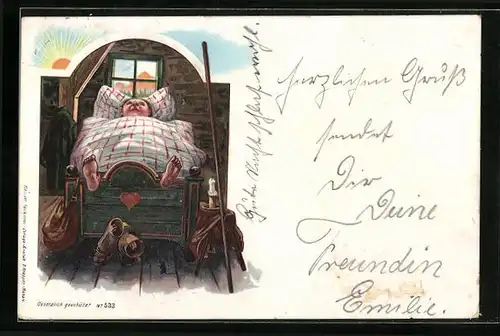 herzlichen Gruß
sendet
Dir
Deine
Freundin
Emilie.
Gute Nacht schlaf wohl.
Gesetzlich geschützt No 533